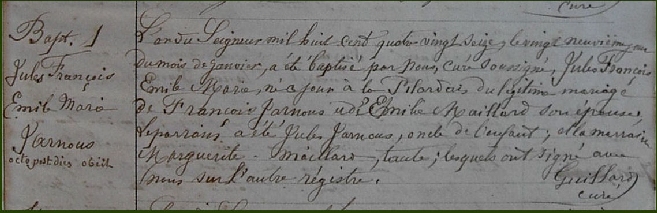 curé
Bapt. 1
Jules François
Emile Marie
Jarnous
octo post dies obiit
L'an du Seigneur mil huit cent quatre vingt seize, le vingt neuvième jour
du mois de janvier, a été baptisé par nous, curé soussigné, Jules François
Emile Marie, né ce jour à la Pilardais du légitime mariage
de François Jarnous et de Emilie Maillard son épouse,
Le parrain a été Jules Jarnous, oncle de l'enfant, et la marraine
Marguerite Maillard, tante; lesquels ont signé avec
nous sur l'autre régistre.
Guillard
curé